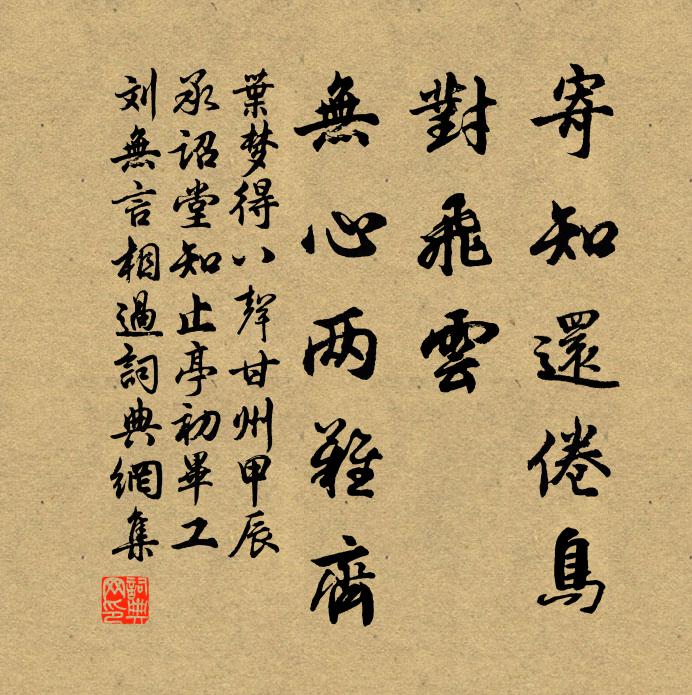 寄知還倦鳥
對飛雲
無心兩難齊
葉梦得八聲甘州甲辰
承詔堂知止亭初畢工
刘無言相過詞典網集
詞典网印